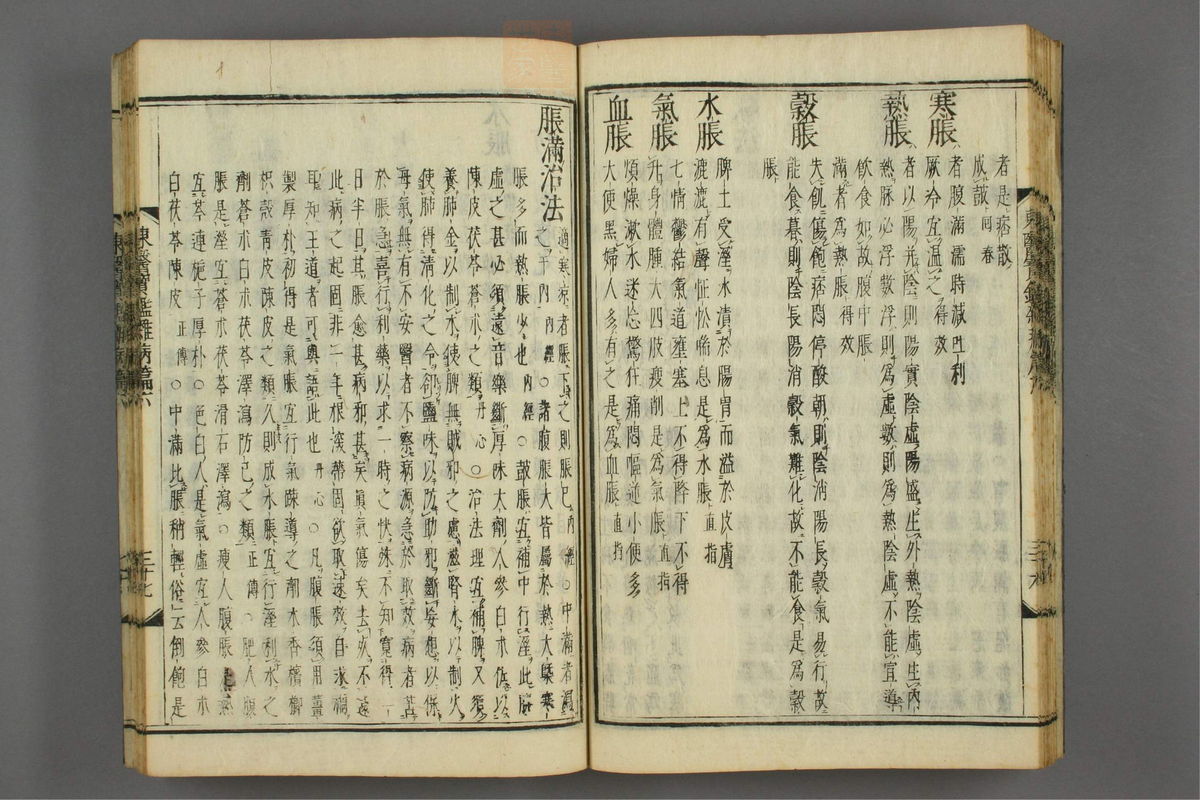 者是痞散
成誠 回春
寒脹
者腹滿濡時減吐利
厥冷宜溫之 得效
熱脹
者以陽并陰則陽實陰虛陽盛生外熱陰虛生內
熱脉必浮數浮則爲虛數則爲熱陰虛不能宜導
飮食如故腹中脹
滿者爲熱脹 得效
穀脹
失飢傷飽痞悶停酸朝則陰消陽長穀氣易行故
能食暮則陰長陽消穀氣難化故不能食是爲穀
脹
水脹
脾土受濕水漬於腸胃而溢於皮膚
漉漉有聲怔忪喘息是爲水脹 直指
氣脹
七情鬱結氣道壅塞上不得降下不得
升身體腫大四肢瘦削是爲氣脹 直指
血脹
煩燥漱水迷忘驚狂痛悶嘔逆小便多
大便黑婦人多有之是爲血脹 直指
脹滿治法
適寒凉者脹下之則脹已 內經 ○中滿者瀉
之於內 內經 ○諸腹脹大皆屬於熱大槩寒
脹多而熱脹少也 內經 ○鼓脹宜補中行濕此病
虛之甚必須遠音樂斷厚味大劑人參白朮佐以
陳皮茯苓蒼朮之類 丹心 ○治法理宜補脾又須
養肺金以制木使脾無賊邪之慮滋腎水以制火
使肺得清化之令却鹽味以防助邪斷妄想以保
母氣無有不安醫者不察病源急於取效病者苦
於脹急喜行利藥以求一時之快殊不知寬得一
日半日其脹愈甚病邪甚矣眞氣傷矣去死不遠
此病之起固非一年根深帶固欲取速效自求禍
耳知王道者可與語此也 丹心 ○凡腹脹須用薑
製厚朴初得是氣脹宜行氣踈導之劑木香檳榔
枳殼靑皮陳皮之類久則成水脹宜行濕利水之
劑蒼朮白朮茯苓澤瀉防己之類 正傳 ○肥人腹
脹是濕宜蒼朮茯苓滑石澤瀉○瘦人腹脹是熱
宜芩連梔子厚朴○色白人是氣虛宜人參白朮
白茯苓陳皮 正傳 ○中滿比脹稍輕俗云倒飽是
東醫寶鑑雜病篇六
三十七